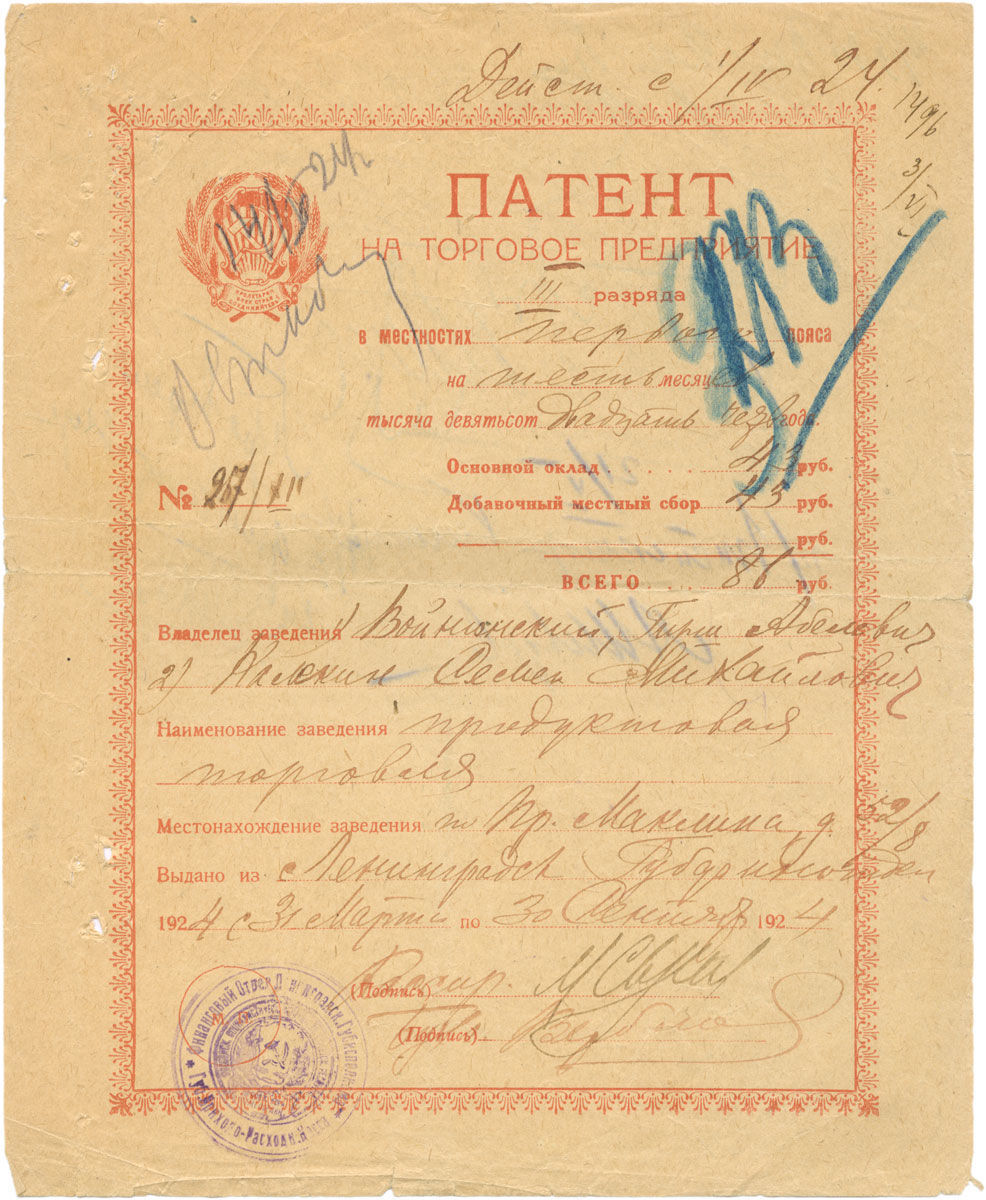 Дейст. с 1/IV 24.
1496
3/VI
ПАТЕНТ
НА ТОРГОВОЕ ПРЕДПРИЯТИЕ
III разряда
в местностях первого пояса
на шесть месяцев
тысяча девятьсот двадцать четв года.
Основной оклад . . . . . 43 руб.
№ 267/XII
Добавочный местный сбор 43 руб.
руб.
ВСЕГО . . . 86 руб.
Владелец заведения 1) Войнинский, Гирш Абелевич
2) Семен Михайлович
Наименование заведения продуктовая
торговля
Местонахождение заведения по Пр. Маклина, д. 52/8
Выдано из с Ленинградск Губфинотдел
1924 с 31 Марта по 30 Сентября 1924
(Подпись)
(Подпись)
Финансовый Отдел